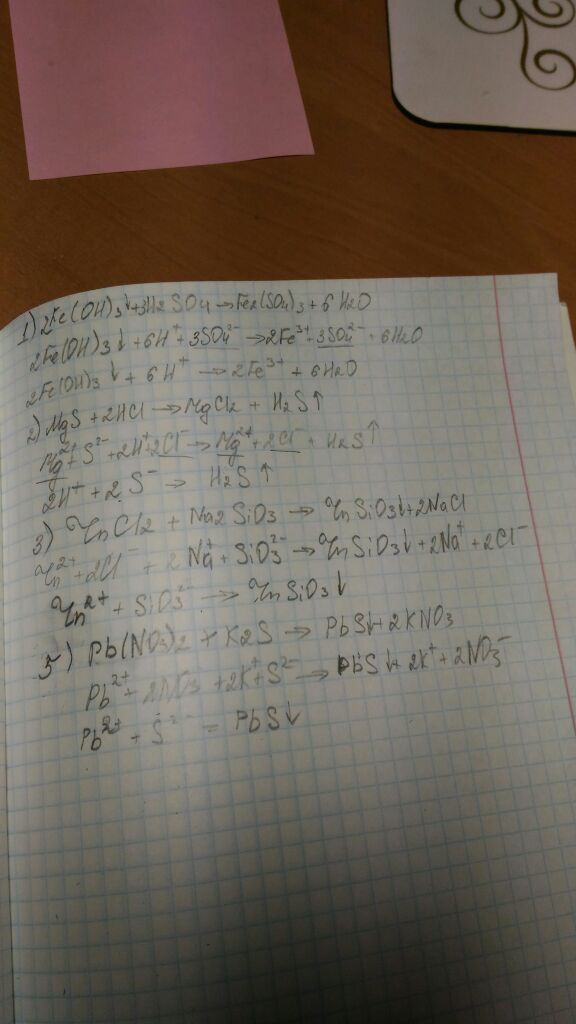 1) 2Fe(OH)3↓+3H2SO4→Fe2(SO4)3+6H2O
2Fe(OH)3↓+6H⁺+3SO4²⁻→2Fe³⁺+3SO4²⁻+6H2O
2Fe(OH)3↓+6H⁺→2Fe³⁺+6H2O
2) MgS+2HCl→MgCl2+H2S↑
Mg²⁺+S²⁻+2H⁺+2Cl⁻→Mg²⁺+2Cl⁻+H2S↑
2H⁺+2S⁻→H2S↑
3) ZnCl2+Na2SiO3→ZnSiO3↓+2NaCl
Zn²⁺+2Cl⁻+2Na⁺+SiO3²⁻→ZnSiO3↓+2Na⁺+2Cl⁻
Zn²⁺+SiO3²⁻→ZnSiO3↓
5) Pb(NO3)2+K2S→PbS↓+2KNO3
Pb²⁺+2NO3⁻+2K⁺+S²⁻→PbS↓+2K⁺+2NO3⁻
Pb²⁺+S²⁻=PbS↓